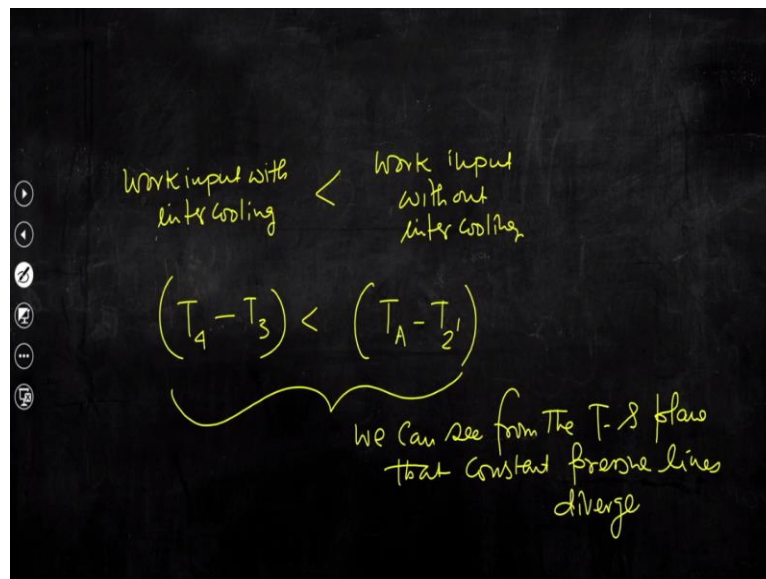 Work input with
inter cooling
<
Work input
without
inter cooling
(T4 - T3) < (TA - T2')
we can see from the T-S plane
that constant pressure lines
diverge